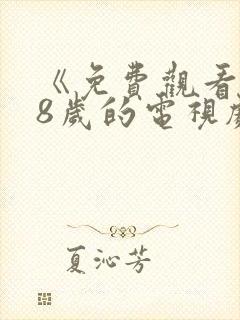 《免費觀看
8歲的電視劇
夏沁芳